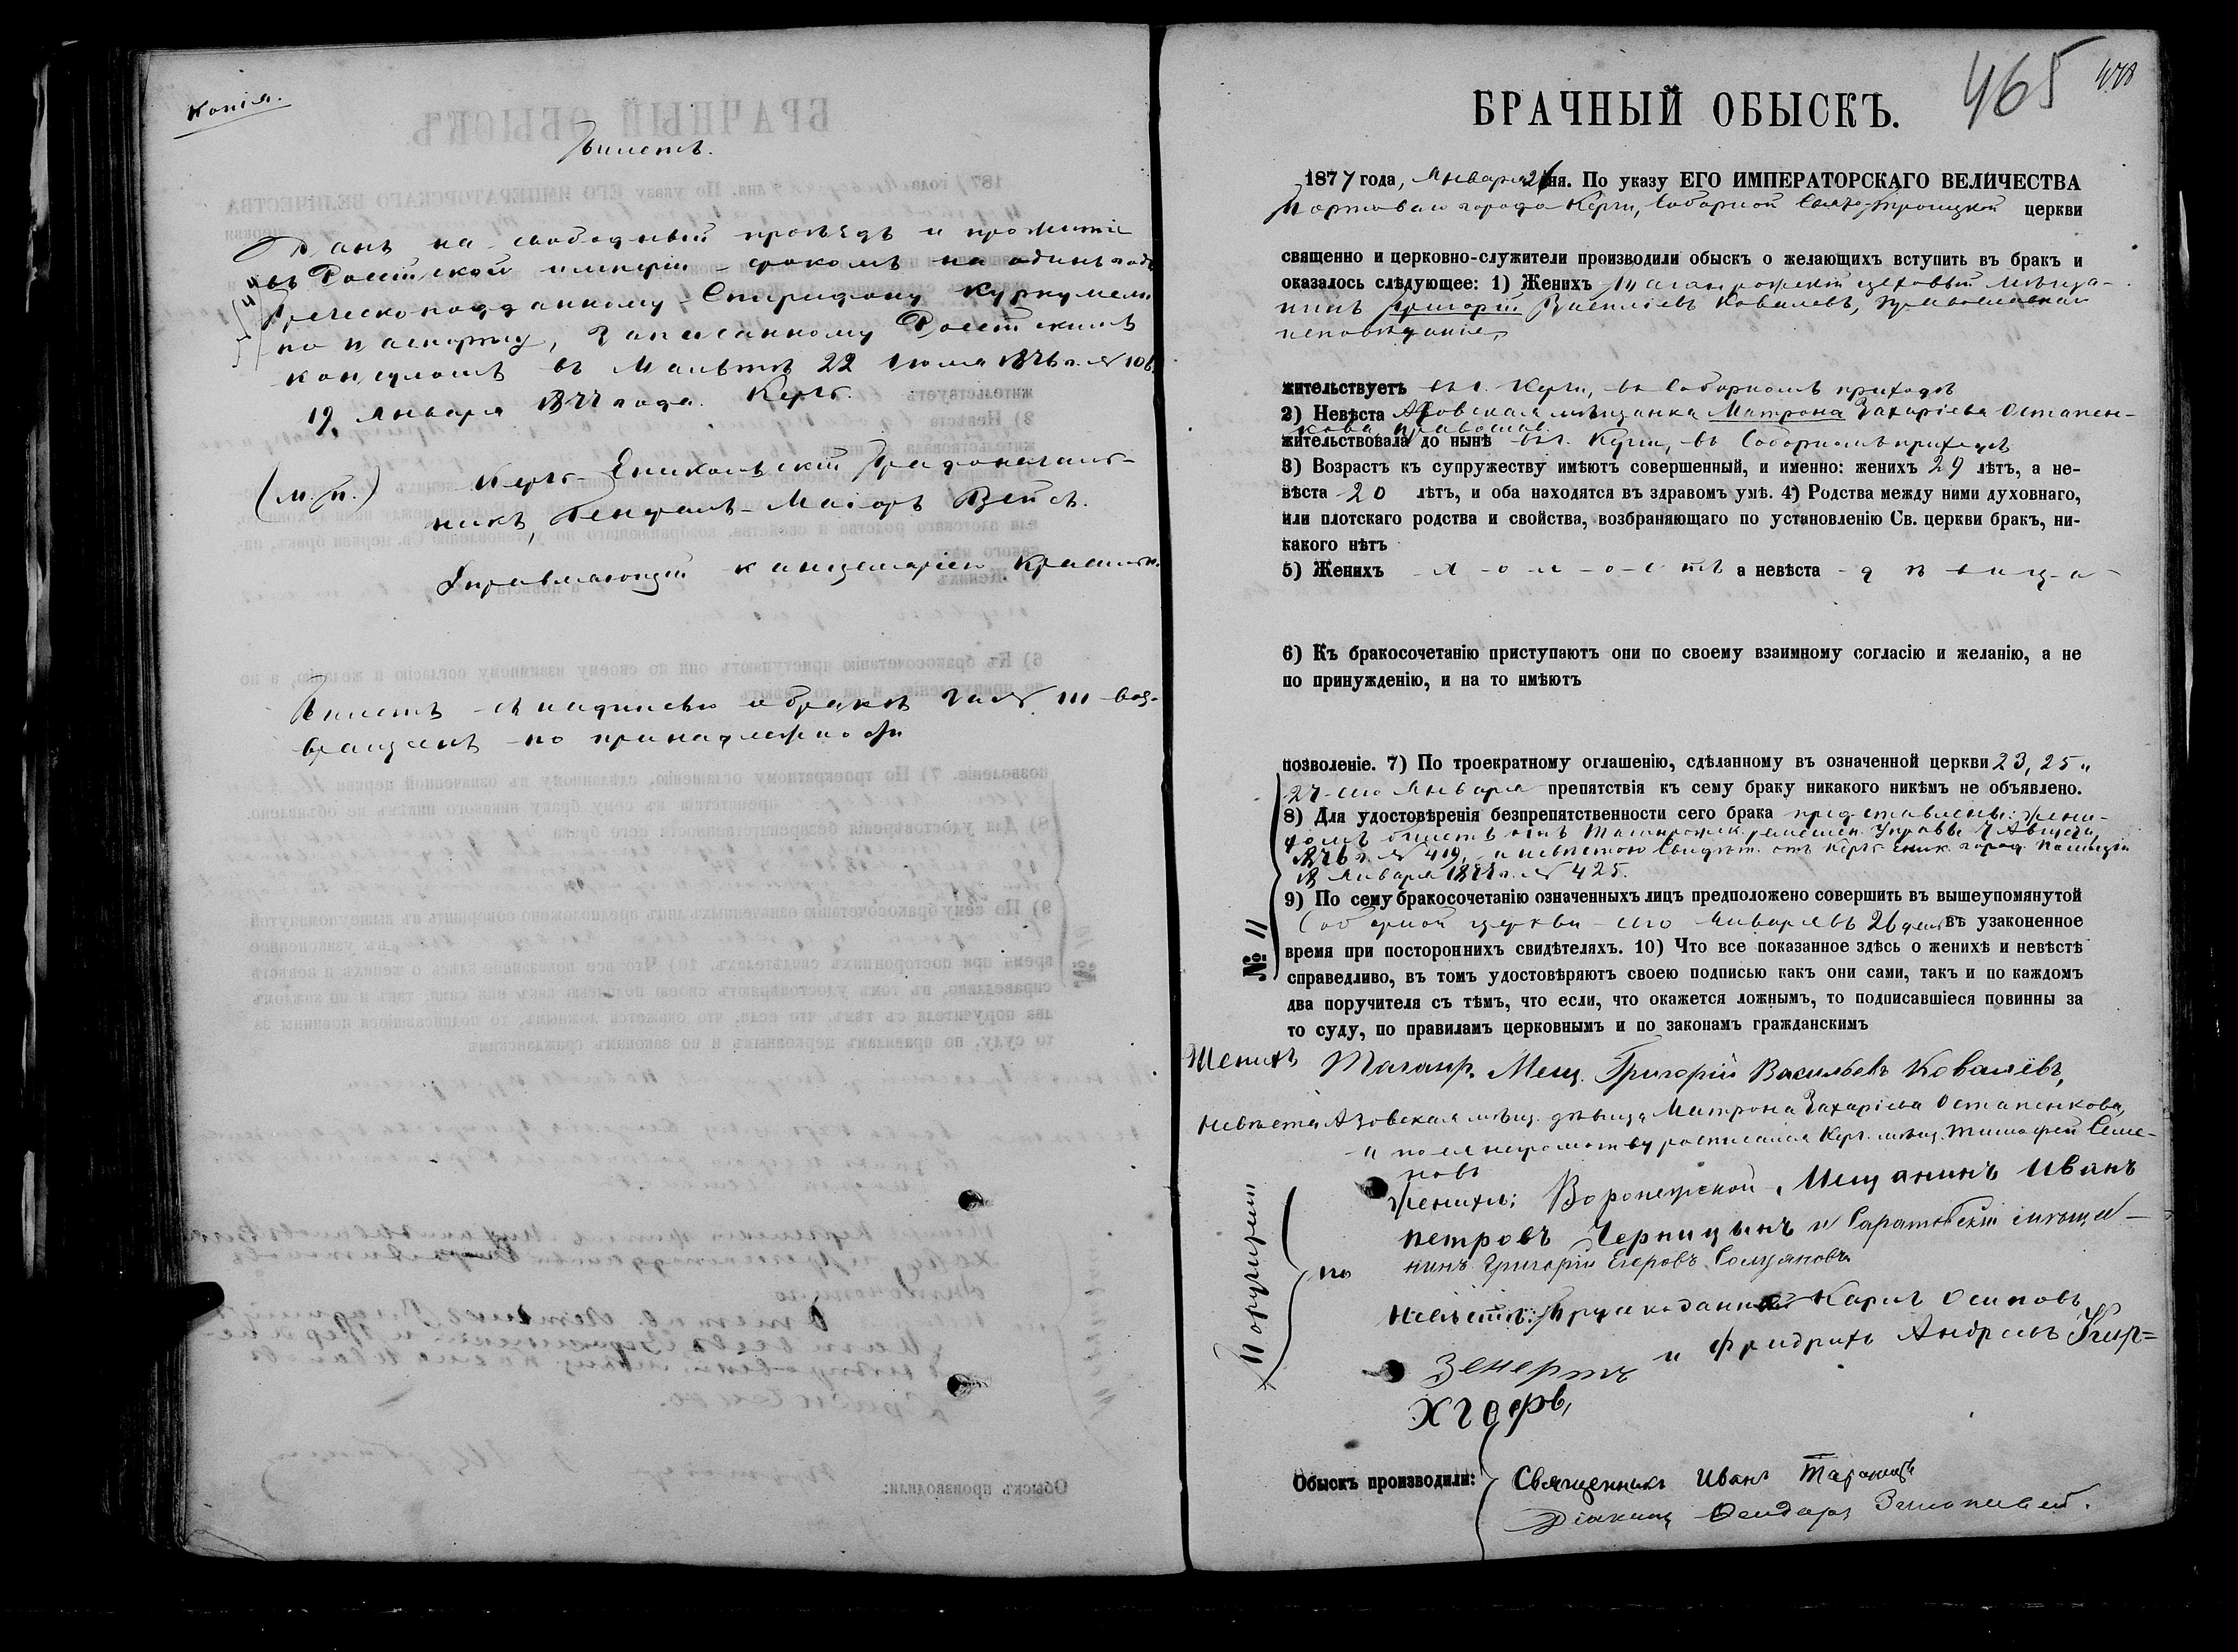 Копія.
Билетъ.
Данъ на свободный проѣздъ и прожитіе
въ Россійской имперіи срокомъ на одинъ годъ
Греческоподданному Спиридону Куркумели
по паспорту, записанному Россійскимъ
консуломъ въ Мальтѣ 22 Іюля 1876 г. № 108.
19 Января 1877 года. Керчь.
(М.П.) Керчь-Еникольскій Градоначаль-
никъ, Генералъ-Маіоръ Вейсъ.
Управляющій канцеляріею
Билетъ съ надписью о бракѣ за № 111 воз-
вращенъ по принадлежности
465
БРАЧНЫЙ ОБЫСКЪ.
1877 года, Января 26 дня. По указу ЕГО ИМПЕРАТОРСКАГО ВЕЛИЧЕСТВА
Портоваго города Керчи, Соборной Свято-Троицкой церкви
священно и церковно-служители производили обыскъ о желающихъ вступить въ бракъ и
оказалось слѣдующее: 1) Женихъ Таганрожскій цеховый мѣща-
нинъ Григорій Василіевъ Ковалевъ, православнаго
исповѣданія,
жительствуетъ въ г. Керчи, въ Соборномъ приходѣ
2) Невѣста Азовская мѣщанка Матрона Захаріева Остапен-
кова, православ.
жительствовала до нынѣ въ г. Керчи, въ Соборномъ приходѣ
3) Возрастъ къ супружеству имѣютъ совершенный, и именно: женихъ 29 лѣтъ, а не-
вѣста 20 лѣтъ, и оба находятся въ здравомъ умѣ. 4) Родства между ними духовнаго,
или плотскаго родства и свойства, возбраняющаго по установленію Св. церкви бракъ, ни-
какого нѣтъ
5) Женихъ х-о-л-о-с-тъ а невѣста - д ѣ в и ц-а -
6) Къ бракосочетанію приступаютъ они по своему взаимному согласію и желанію, а не
по принужденію, и на то имѣютъ
позволеніе. 7) По троекратному оглашенію, сдѣланному въ означенной церкви 23, 25 и
27-го Января препятствія къ сему браку никакого никѣмъ не объявлено.
8) Для удостовѣренія безпрепятственности сего брака представлены: жени-
хомъ билетъ отъ Таганрожск. ремеслен. Управы 7 Августа
1876 г. № 419, и невѣстою Свидѣт. отъ Керчь-еник. город. полиціи
18 Января 1877 г. № 425.
9) По сему бракосочетанію означенныхъ лицъ предположено совершить въ вышеупомянутой
Соборной церкви сего Января въ 26 день въ узаконенное
время при постороннихъ свидѣтеляхъ. 10) Что все показанное здѣсь о женихѣ и невѣстѣ
справедливо, въ томъ удостовѣряютъ своею подписью какъ они сами, такъ и по каждомъ
два поручителя съ тѣмъ, что если, что окажется ложнымъ, то подписавшіеся повинны за
то суду, по правиламъ церковнымъ и по законамъ гражданскимъ
№ 11
Женихъ Таганр. Мещ. Григорій Васильевъ Ковалёвъ,
Невѣста Азовская мѣщ. дѣвица Матрона Захаріева Остапенкова,
а по ея неграмотству росписался Керч. мѣщ. Тимофей Семе-
новъ
Поручители по
Женихѣ: Воронежской Мещанинъ Иванъ
Петровъ Черницынъ и Саратовскій мѣща-
нинъ Григорій Егоровъ
Невѣстѣ: Карлъ Осиповъ
Зенертъ и Фридрихъ Андреевъ
Обыскъ производили: Священникъ Иванъ
Діаконъ